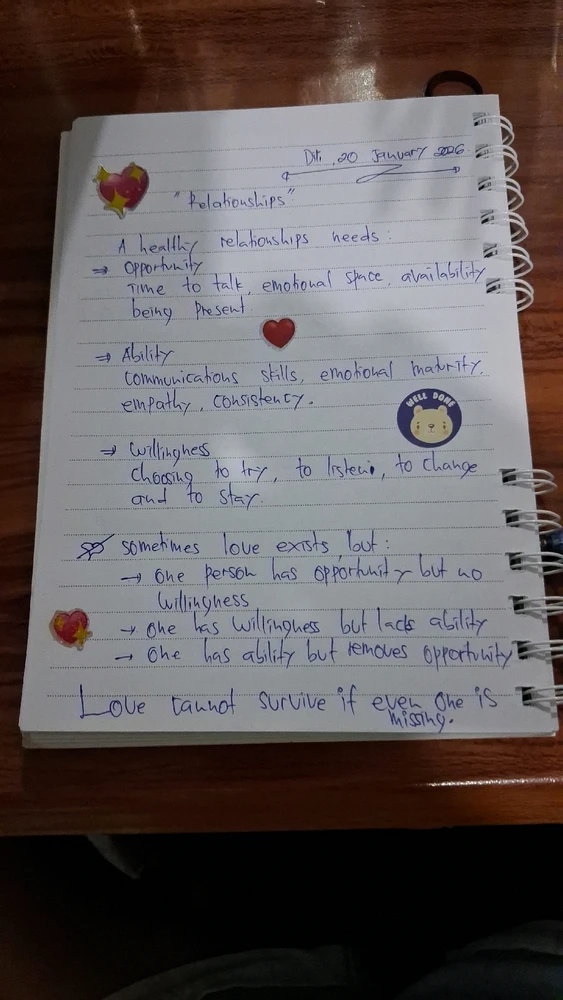 Dt: 20 January 2026
"Relationships"
A healthy relationships needs:
⇒ Opportunity
Time to talk, emotional space, availability
being present
⇒ Ability
Communications skills, emotional maturity,
empathy, consistency.
WELL DONE
→ Willingness
choosing to try, to listen, to change
and to stay.
sometimes love exists, but:
→ One person has opportunity but no
willingness
→ One has willingness but lacks ability
→ One has ability but removes opportunity
Love cannot survive if even one is
missing.